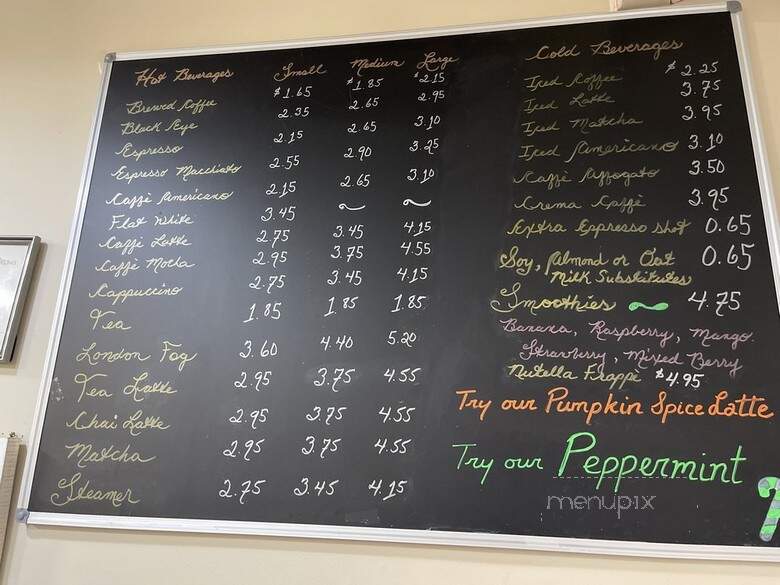 Hot Beverages Small Medium Large
Brewed Coffee $1.65 $1.85 $2.15
Black Eye 2.35 2.65 2.95
Espresso 2.15 2.65 3.10
Espresso Macchiato 2.55 2.90 3.25
Caffè Americano 2.15 2.65 3.10
Flat White 3.45 ~ ~
Caffè Latte 2.75 3.45 4.15
Caffè Mocha 2.95 3.75 4.55
Cappuccino 2.75 3.45 4.15
Tea 1.85 1.85 1.85
London Fog 3.60 4.40 5.20
Tea Latte 2.95 3.75 4.55
Chai Latte 2.95 3.75 4.55
Matcha 2.95 3.75 4.55
Steamer 2.75 3.45 4.15
Cold Beverages
Iced Coffee $2.25
Iced Latte 3.75
Iced Matcha 3.95
Iced Americano 3.10
Caffè Affogato 3.50
Crema Caffè 3.95
Extra Espresso shot 0.65
Soy, Almond or Oat 0.65
Milk Substitutes
Smoothies ~ 4.75
Banana, Raspberry, Mango.
Strawberry, Mixed Berry
Nutella Frappe $4.95
Try our Pumpkin Spice Latte
Try our Peppermint
menupix